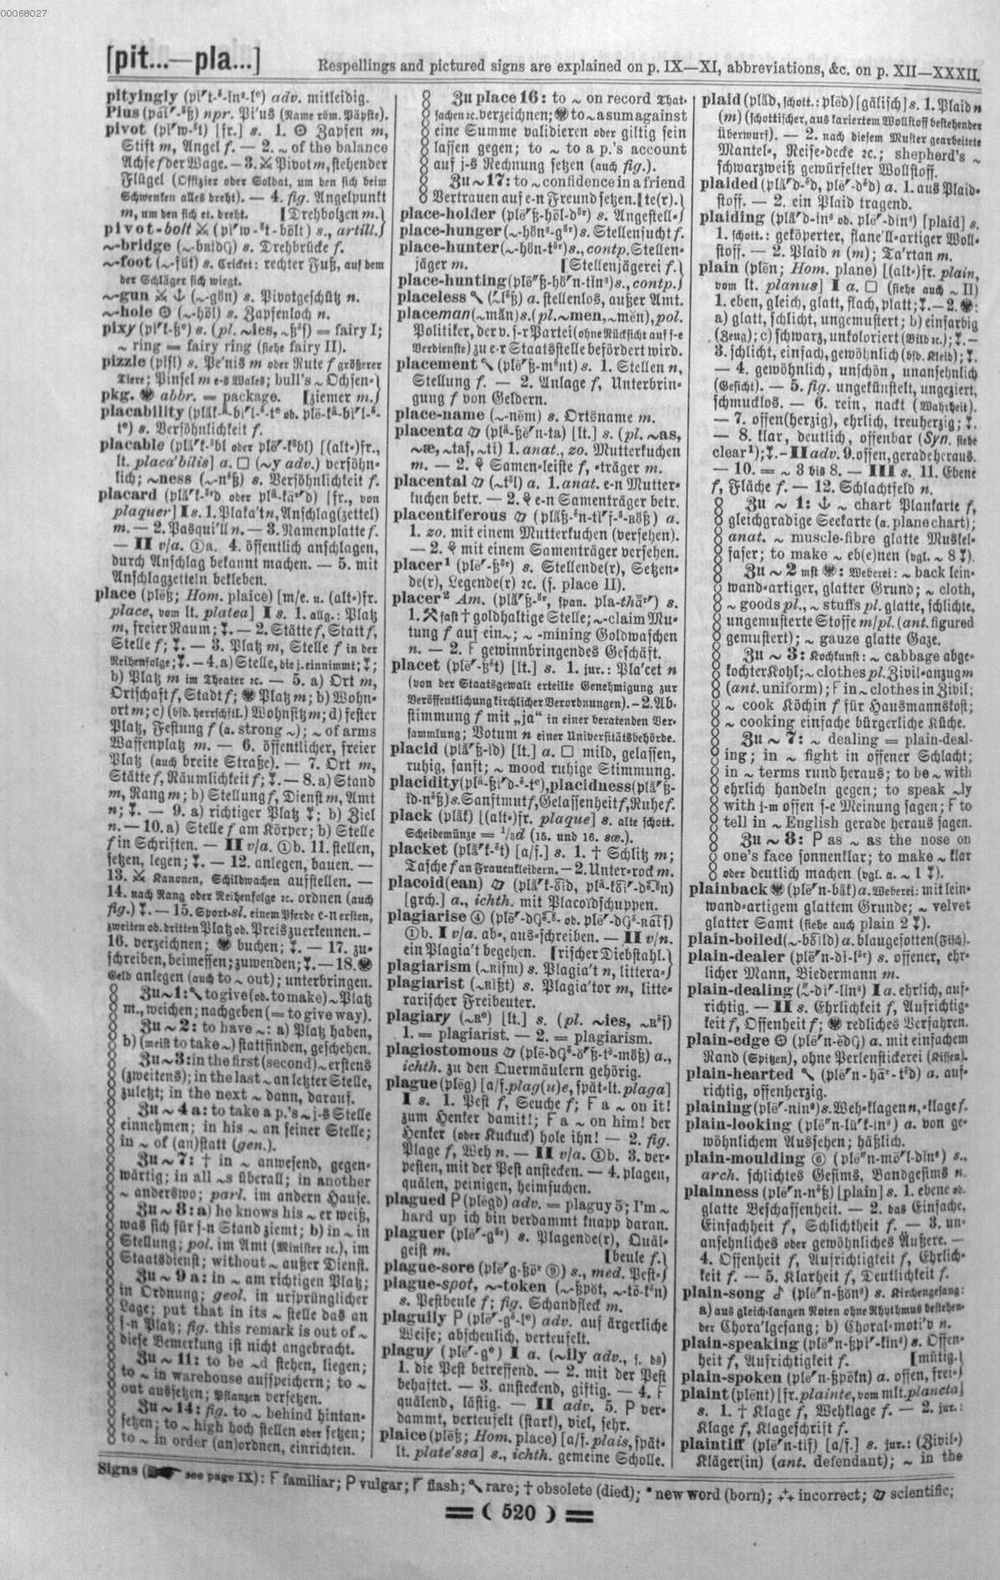 00068027
[pit...—pla...]
Respellings and pictured signs are explained on p. IX—XI, abbreviations, &c. on p. XII—XXXII.
pityingly adv. mitleidig.
Pius npr. Pi'us (Name röm. Päpste).
pivot [fr.] s. 1. Zapfen m,
Stift m, Angel f. — 2. ~ of the balance
Achse f der Wage. — 3. Pivot m, stehender
Flügel (Offizier oder Soldat, um den sich beim
Schwenken alles dreht). — 4. fig. Angelpunkt
m, um den sich et. dreht. [Drehbolzen m.}
pivot-bolt s., artill.
~-bridge s. Drehbrücke f.
~-foot s. Cricket: rechter Fuß, auf dem
der Schläger sich wiegt.
~-gun s. Pivotgeschütz n.
~-hole s. Zapfenloch n.
pixy = fairy I;
~ ring = fairy ring (siehe fairy II).
pizzle s. Pe'nis m oder Rute f größerer
Tiere; bull's ~ Ochsen-
pkg. abbr. = package. [ziemer m.
placability
s. Versöhnlichkeit f.
placable [(alt-)fr.,
lt. placa'bilis] a. (~y adv.) versöhn-
lich; ~ness s. Versöhnlichkeit f.
placard [fr., von
plaquer] I s. 1. Plaka't n, Anschlag(zettel)
m. — 2. Pasqui'll n. — 3. Namenplatte f.
— II v/a. 4. öffentlich anschlagen,
durch Anschlag bekannt machen. — 5. mit
Anschlagzetteln bekleben.
place [m/e. u. (alt-)fr.
place, vom lt. platea] I s. 1. allg.: Platz
m, freier Raum; — 2. Stätte f, Statt f,
Stelle f; — 3. Platz m, Stelle f in der
Reihenfolge; — 4. a) Stelle, die j. einnimmt;
b) Platz m im Theater ɾc. — 5. a) Ort m,
Ortschaft f, Stadt f; Platz m; b) Wohn-
ort m; c) (bsd. herrschftl.) Wohnsitz m; d) fester
Platz, Festung f (a. strong ~); ~ of arms
Waffenplatz m. — 6. öffentlicher, freier
Platz (auch breite Straße). — 7. Ort m,
Stätte f, Räumlichkeit f; — 8. a) Stand
m, Rang m; b) Stellung f, Dienst m, Amt
n; — 9. a) richtiger Platz; b) Ziel
n. — 10. a) Stelle f am Körper; b) Stelle
f in Schriften. — II v/a. 11. stellen,
setzen, legen; — 12. anlegen, bauen. —
13. Kanonen, Schildwachen aufstellen. —
14. nach Rang oder Reihenfolge ɾc. ordnen (auch
fig.) — 15. Sport-sl. einem Pferde e-n ersten,
zweiten od. dritten Platz od. Preis zuerkennen. —
16. verzeichnen; buchen; — 17. zu-
schreiben, beimessen; zuwenden; — 18.
Geld anlegen (auch to ~ out); unterbringen.
Zu ~ 1: to give (od. to make) ~ Platz
m., weichen; nachgeben (= to give way).
Zu ~ 2: to have ~: a) Platz haben,
b) (meist to take ~) stattfinden, geschehen.
Zu ~ 3: in the first (second) ~ erstens
(zweitens); in the last ~ an letzter Stelle,
zuletzt; in the next ~ dann, darauf.
Zu ~ 4 a: to take a p.'s ~ j-s Stelle
einnehmen; in his ~ an seiner Stelle;
in ~ of (an)statt (gen.).
Zu ~ 7: † in ~ anwesend, gegen-
wärtig; in all ~s überall; in another
~ anderswo; parl. im andern Hause.
Zu ~ 8: a) he knows his ~ er weiß,
was sich für s-n Stand ziemt; b) in ~ in
Stellung; pol. im Amt (Minister ɾc.), im
Staatsdienst; without ~ außer Dienst.
Zu ~ 9 a: in ~ am richtigen Platz;
in Ordnung; geol. in ursprünglicher
Lage; put that in its ~ stelle das an
s-n Platz; fig. this remark is out of ~
diese Bemerkung ist nicht angebracht.
Zu ~ 11: to be ~d stehen, liegen;
to ~ in warehouse aufspeichern; to ~
out aussetzen; Pflanzen versetzen.
Zu ~ 14: fig. to ~ behind hintan-
setzen; to ~ high hoch stellen oder setzen;
to ~ in order (an)ordnen, einrichten.
Zu place 16: to ~ on record That-
sachen ɾc. verzeichnen; to ~ a sum against
eine Summe validieren oder giltig sein
lassen gegen; to ~ to a p.'s account
auf j-s Rechnung setzen (auch fig.).
Zu ~ 17: to ~ confidence in a friend
Vertrauen auf e-n Freund setzen. [te(r).}
place-holder s. Angestell-
place-hunger s. Stellensucht f.
place-hunter s., contp. Stellen-
jäger m. [Stellenjägerei f.}
place-hunting s., contp.
placeless a. stellenlos, außer Amt.
placeman s. (pl. ~men), pol.
Politiker, der v. s-r Partei (ohne Rücksicht auf s-e
Verdienste) zu e-r Staatsstelle befördert wird.
placement s. 1. Stellen n,
Stellung f. — 2. Anlage f, Unterbrin-
gung f von Geldern.
place-name s. Ortsname m.
placenta [lt.] s. (pl. ~as,
~æ) 1. anat., zo. Mutterkuchen
m. — 2. Samen-leiste f, -träger m.
placental a. 1. anat. e-n Mutter-
kuchen betr. — 2. e-n Samenträger betr.
placentiferous a.
1. zo. mit einem Mutterkuchen (versehen).
— 2. mit einem Samenträger versehen.
placer¹ s. Stellende(r), Setzen-
de(r), Legende(r) ɾc. (s. place II).
placer² Am. s.
1. fast † goldhaltige Stelle; ~-claim Mu-
tung f auf ein ~; ~-mining Goldwaschen
n. — 2. F gewinnbringendes Geschäft.
placet [lt.] s. 1. jur.: Pla'cet n
(von der Staatsgewalt erteilte Genehmigung zur
Veröffentlichung kirchlicher Verordnungen). — 2. Ab-
stimmung f mit „ja“ in einer beratenden Ver-
sammlung; Votum n einer Universitätsbehörde.
placid [lt.] a. mild, gelassen,
ruhig, sanft; ~ mood ruhige Stimmung.
placidity, placidness
s. Sanftmut f, Gelassenheit f, Ruhe f.
plack [(alt-)fr. plaque] s. alte schott.
Scheidemünze = ⅓d (15. und 16. sæ.).
placket [a/f.] s. 1. † Schlitz m;
Tasche f an Frauenkleidern. — 2. Unter-rock m.
placoid(ean)
[grch.] a., ichth. mit Placoidschuppen.
plagiarise
I v/a. ab-, aus-schreiben. — II v/n.
ein Plagia't begehen. [rischer Diebstahl.}
plagiarism s. Plagia't n, littera-
plagiarist s. Plagia'tor m, litte-
rarischer Freibeuter.
plagiary [lt.] s. (pl. ~ies)
1. = plagiarist. — 2. = plagiarism.
plagiostomous a.,
ichth. zu den Quermäulern gehörig.
plague [a/f. plag(u)e, spät-lt. plaga]
I s. 1. Pest f, Seuche f; F a ~ on it!
zum Henker damit!; F a ~ on him! der
Henker (oder Kuckuck) hole ihn! — 2. fig.
Plage f, Weh n. — II v/a. 3. ver-
pesten, mit der Pest anstecken. — 4. plagen,
quälen, peinigen, heimsuchen.
plagued P adv. = plaguy 5; I'm ~
hard up ich bin verdammt knapp daran.
plaguer s. Plagende(r), Quäl-
geist m. [beule f.}
plague-sore s., med. Pest-
plague-spot, ~-token
s. Pestbeule f; fig. Schandfleck m.
plaguily P adv. auf ärgerliche
Weise; abscheulich, verteufelt.
plaguy I a. (~ily adv., s. ds)
1. die Pest betreffend. — 2. mit der Pest
behaftet. — 3. ansteckend, giftig. — 4. F
quälend, lästig. — II adv. 5. P ver-
dammt, verteufelt (stark), viel, sehr.
plaice [a/f. plais, spät-
lt. plate'ssa] s., ichth. gemeine Scholle.
plaid [gälisch] s. 1. Plaid n
(m) (schottischer, aus kariertem Wollstoff bestehender
Überwurf). — 2. nach diesem Muster gearbeitete
Mantel-, Reise-decke ɾc.; shepherd's ~
schwarzweiß gewürfelter Wollstoff.
plaided a. 1. aus Plaid-
stoff. — 2. ein Plaid tragend.
plaiding [plaid] s.
1. schott.: geköperter, flane'll-artiger Woll-
stoff. — 2. Plaid n (m); Ta'rtan m.
plain [(alt-)fr. plain,
vom lt. planus] I a. (siehe auch ~ II)
1. eben, gleich, glatt, flach, platt; — 2.
a) glatt, schlicht, ungemustert; b) einfarbig
(Zeug); c) schwarz, unkoloriert (Bild ɾc.); —
3. schlicht, einfach, gewöhnlich (bsd. Kleid);
— 4. gewöhnlich, unschön, unansehnlich
(Gesicht). — 5. fig. ungekünstelt, ungeziert,
schmucklos. — 6. rein, nackt (Wahrheit).
— 7. offen(herzig), ehrlich, treuherzig;
— 8. klar, deutlich, offenbar (Syn. siehe
clear¹); — II adv. 9. offen, gerade heraus.
— 10. = ~ 3 bis 8. — III s. 11. Ebene
f, Fläche f. — 12. Schlachtfeld n.
Zu ~ 1: ~ chart Plankarte f,
gleichgradige Seekarte (a. plane chart);
anat. ~ muscle-fibre glatte Muskel-
faser; to make ~ eb(e)nen (vgl. ~ 8).
Zu ~ 2 mst: Weberei: ~ back lein-
wand-artiger, glatter Grund; ~ cloth,
~ goods pl., ~ stuffs pl. glatte, schlichte,
ungemusterte Stoffe m/pl. (ant. figured
gemustert); ~ gauze glatte Gaze.
Zu ~ 3: Kochkunst: ~ cabbage abge-
kochter Kohl; ~ clothes pl. Zivil-anzug m
(ant. uniform); F in ~ clothes in Zivil;
~ cook Köchin f für Hausmannskost;
~ cooking einfache bürgerliche Küche.
Zu ~ 7: ~ dealing = plain-deal-
ing; in ~ fight in offener Schlacht;
in ~ terms rund heraus; to be ~ with
ehrlich handeln gegen; to speak ~ly
with j-m offen s-e Meinung sagen; F to
tell in ~ English gerade heraus sagen.
Zu ~ 8: P as ~ as the nose on
one's face sonnenklar; to make ~ klar
oder deutlich machen (vgl. a. ~ 1).
plainback a. Weberei: mit lein-
wand-artigem glattem Grunde; ~ velvet
glatter Samt (siehe auch plain 2).
plain-boiled a. blaugesotten (Fisch).
plain-dealer s. offener, ehr-
licher Mann, Biedermann m.
plain-dealing I a. ehrlich, auf-
richtig. — II s. Ehrlichkeit f, Aufrichtig-
keit f, Offenheit f; redliches Verfahren.
plain-edge a. mit einfachem
Rand (Spitzen), ohne Perlenstickerei (Kissen).
plain-hearted a. auf-
richtig, offenherzig.
plaining s. Weh-klagen n, -klage f.
plain-looking a. von ge-
wöhnlichem Aussehen; häßlich.
plain-moulding s.,
arch. schlichtes Gesims, Bandgesims n.
plainness [plain] s. 1. ebene od.
glatte Beschaffenheit. — 2. das Einfache,
Einfachheit f, Schlichtheit f. — 3. un-
ansehnliches oder gewöhnliches Äußere. —
4. Offenheit f, Aufrichtigkeit f, Ehrlich-
keit f. — 5. Klarheit f, Deutlichkeit f.
plain-song s. Kirchengesang:
a) aus gleich-langen Noten ohne Rhythmus bestehen-
der Chora'lgesang; b) Choral-moti'v n.
plain-speaking s. Offen-
heit f, Aufrichtigkeit f. [mütig.}
plain-spoken a. offen, frei-
plaint [fr. plainte, vom mlt. plancta]
s. 1. † Klage f, Wehklage f. — 2. jur.:
Klage f, Klageschrift f.
plaintiff [a/f.] s. jur.: (Zivil-)
Kläger(in) (ant. defendant); ~ in the
Signs (see page IX): F familiar; P vulgar; flash; rare; † obsolete (died); * new word (born); incorrect; scientific;
= ( 520 ) =